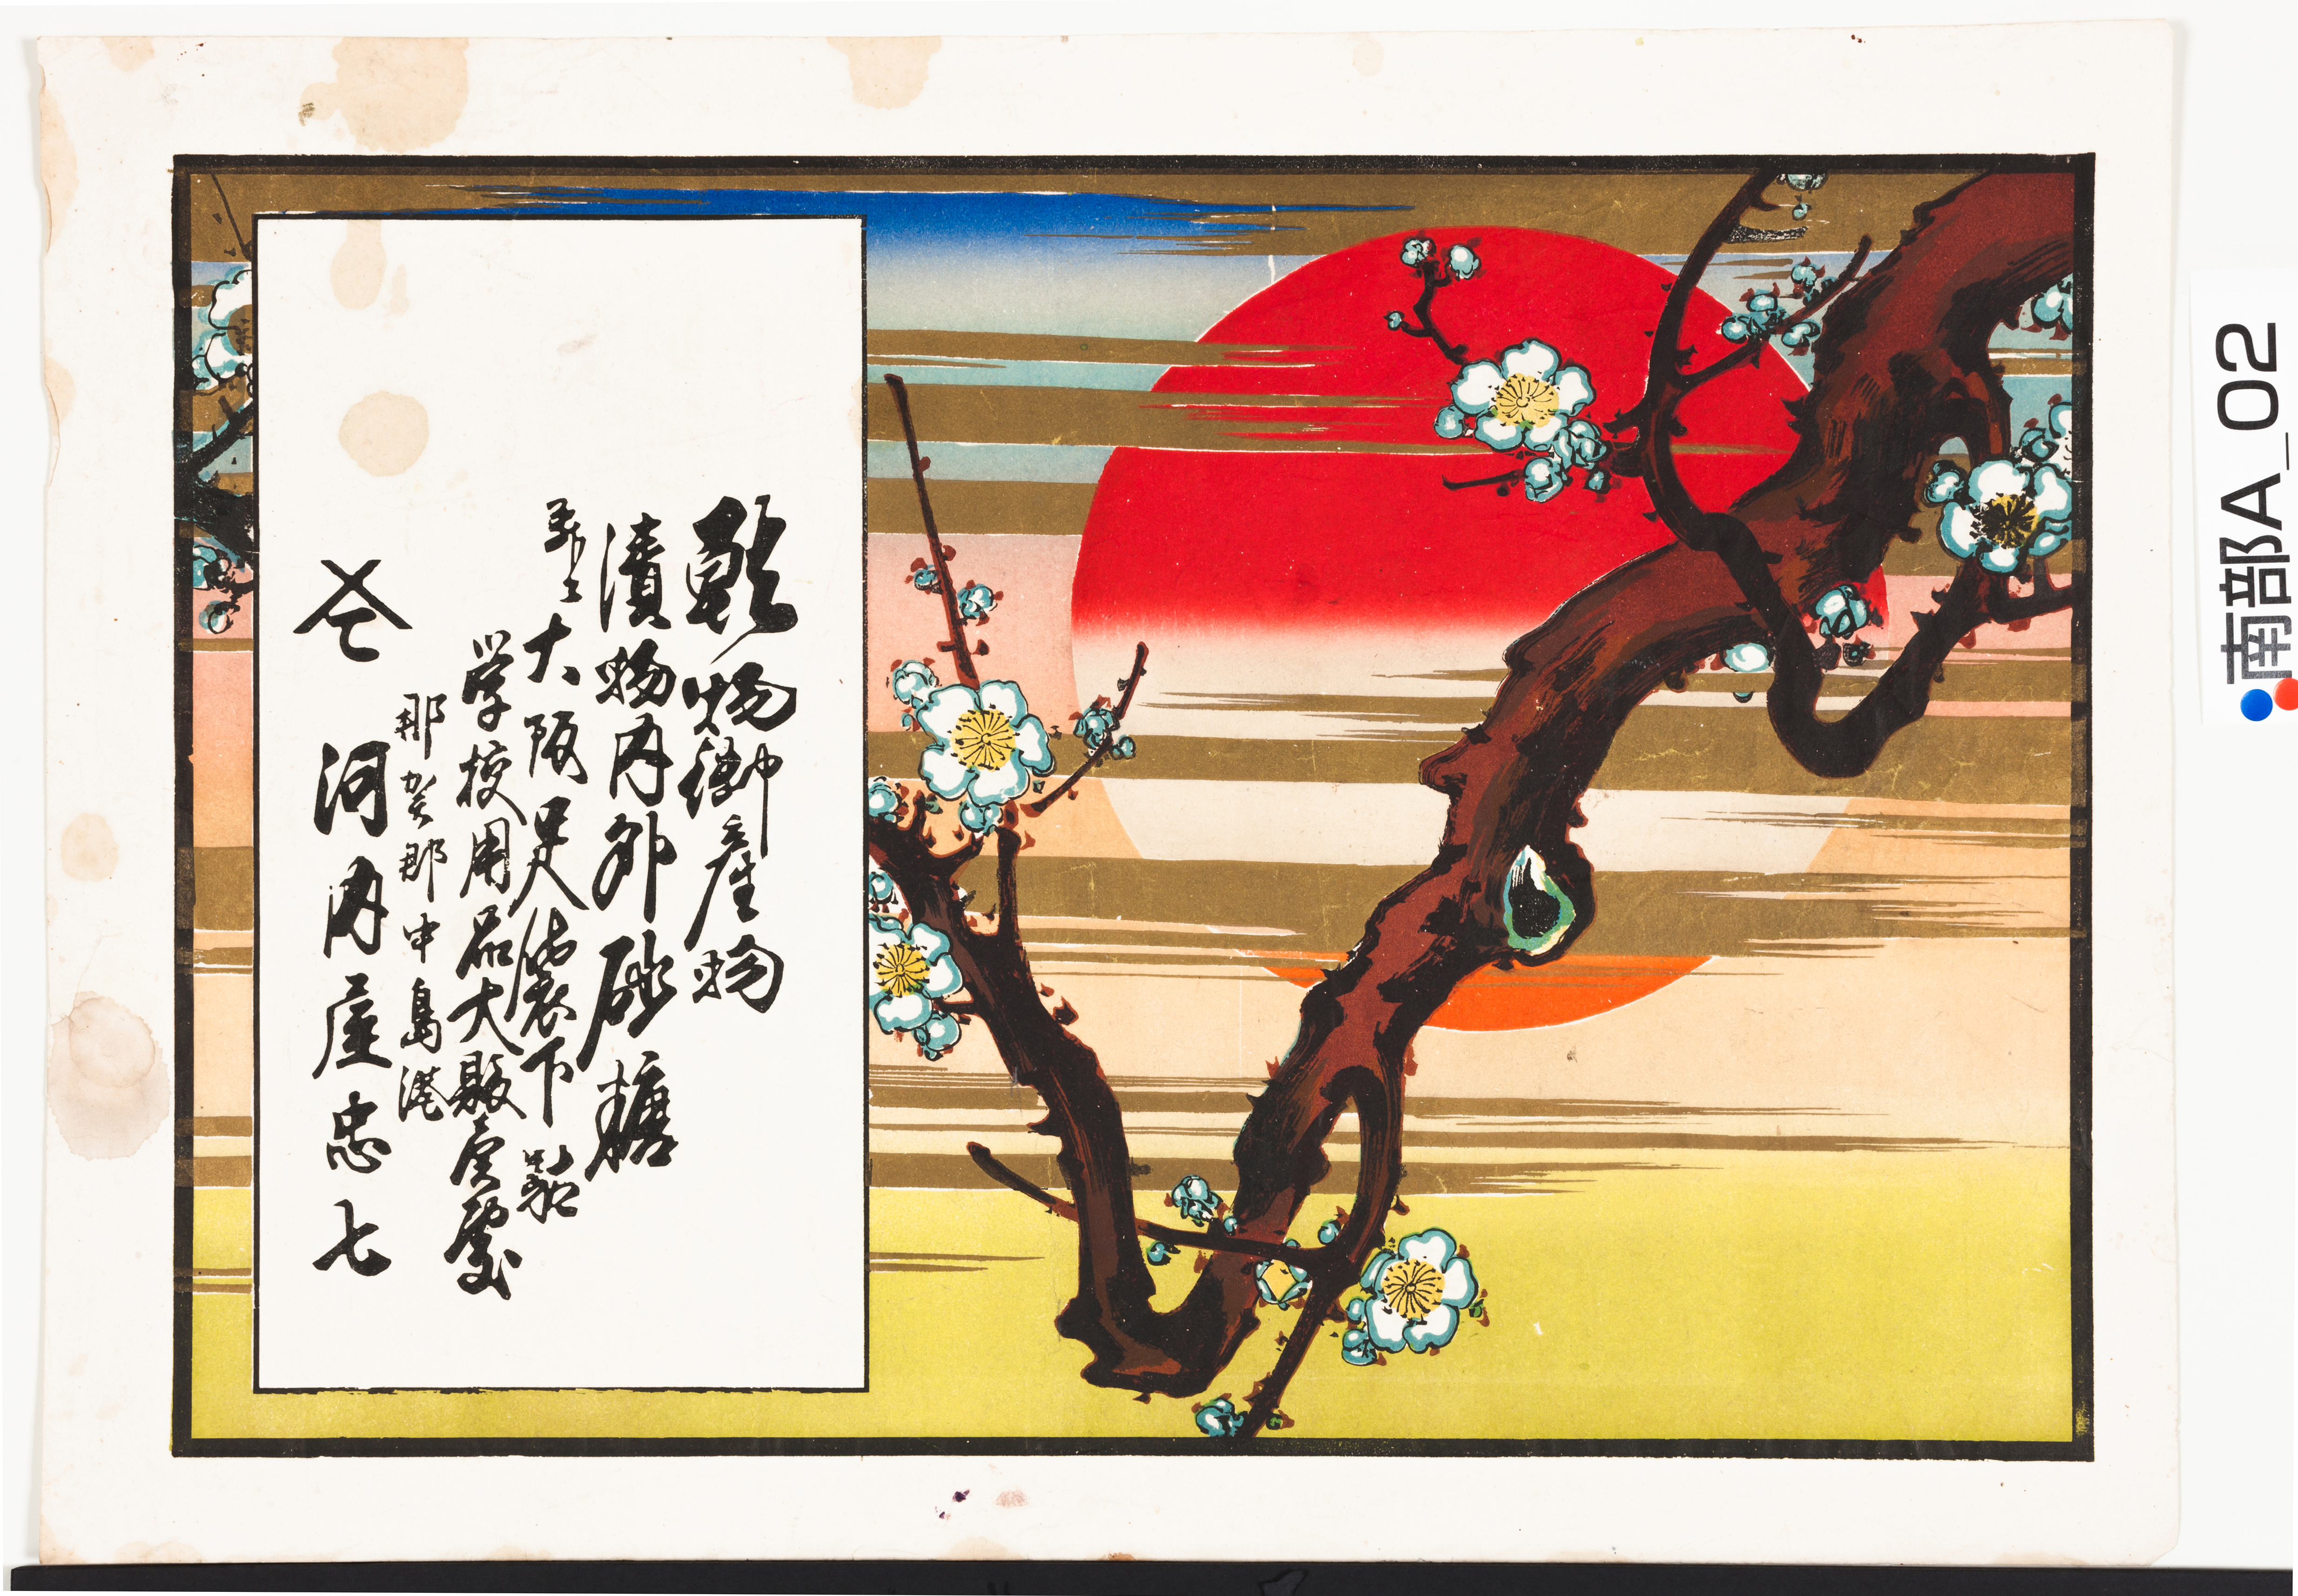 乾物御産物
漬物内外砂糖
並ニ大阪足袋下駄
学校用品大販売處
那賀郡中島港
河内屋忠七
南部A_02